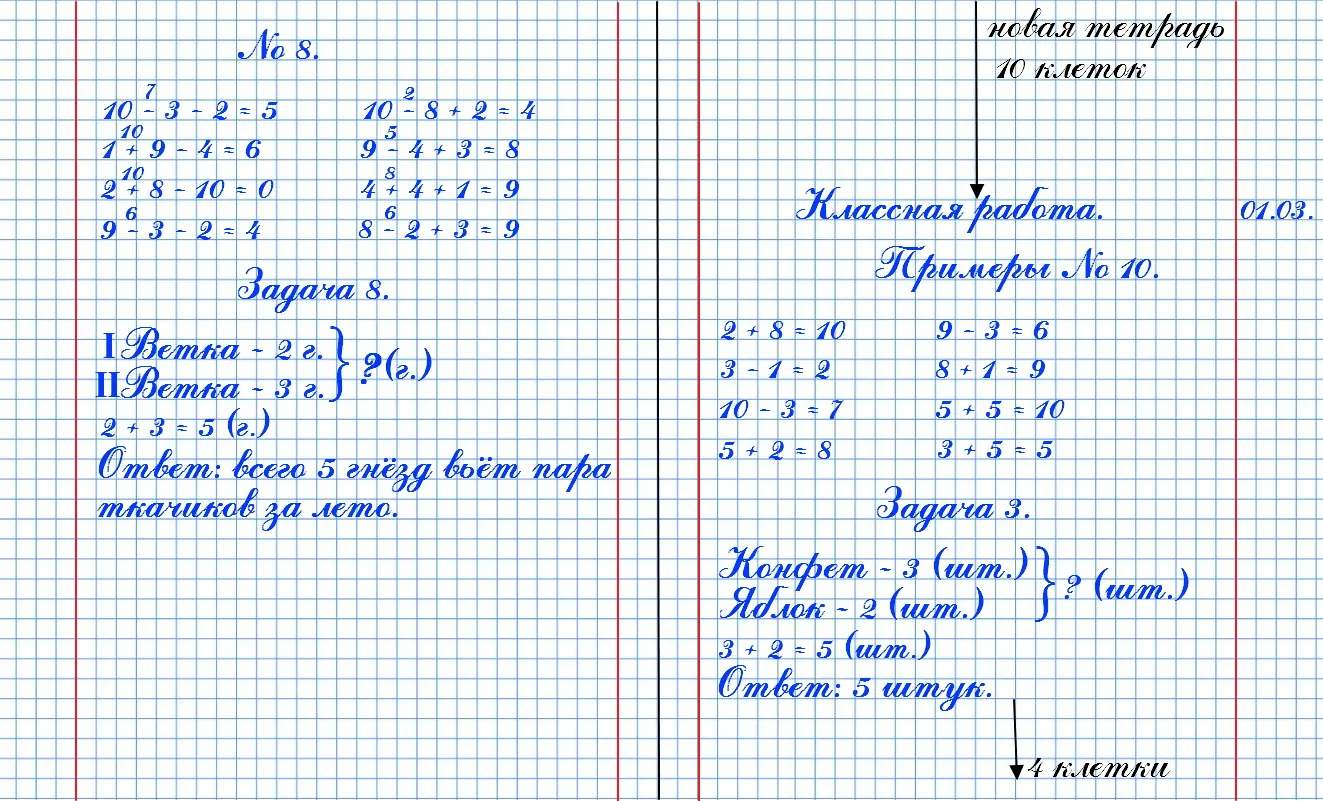 No 8.
7
10 - 3 - 2 = 5
10
1 + 9 - 4 = 6
10
2 + 8 - 10 = 0
6
9 - 3 - 2 = 4
2
10 - 8 + 2 = 4
5
9 - 4 + 3 = 8
8
4 + 4 + 1 = 9
6
8 - 2 + 3 = 9
Задача 8.
I Ветка - 2 г.
II Ветка - 3 г.
} ? (г.)
2 + 3 = 5 (г.)
Ответ: всего 5 гнёзд вьёт пара
ткачиков за лето.
новая тетрадь
10 клеток
Классная работа.
01.03.
Примеры No 10.
2 + 8 = 10
3 - 1 = 2
10 - 3 = 7
5 + 2 = 8
9 - 3 = 6
8 + 1 = 9
5 + 5 = 10
3 + 5 = 5
Задача 3.
Конфет - 3 (шт.)
Яблок - 2 (шт.)
} ? (шт.)
3 + 2 = 5 (шт.)
Ответ: 5 штук.
4 клетки